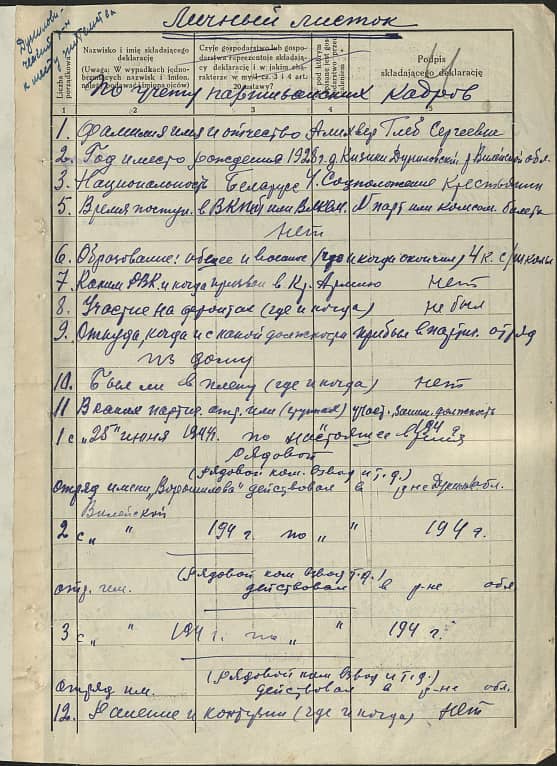 Личный листок
Liczba porządkowa
Nazwisko i imię składającego deklarację
(Uwaga: W wypadkach jednobrzmiących nazwisk i imion należy podawać imiona ojców)
Czyje gospodarstwo lub gospodarstwa reprezentuje składający deklarację i w jakim charakterze w myśl cz. 3 i 4 art. 20 ustawy?
Podpis składającego deklarację
1 2 3 4 5
по учету партизанских кадров
1. Фамилия имя и отчество Глеб Сергеевич
2. Год и место рождения 1926 г. д. Дуниловский р Вилейской обл.
3. Национальность Беларусс 4. Соцположение Крестьянин
5. Время поступ. в ВКП(б) или ВЛКСМ. N парт или комсом. билета
нет
6. Образование: общее и военное (где и когда окончил) 4 кл. с/школы
7 Каким РВК и когда призван в Кр. Армию нет
8. Участие на фронтах (где и когда) не был
9. Откуда, когда и с какой должности прибыл в партиз. отряд
из дому
10. Был ли в плену (где и когда) нет
11 В каких партиз. отр. или (группах) участ., заним. должность
1 с „25" июня 1944 г. по настоящее время 194 г.
Рядовой
(Рядовой ком. Взвод и т.д.)
отряд имени „Ворошилова" действовал в р-не обл.
Вилейской
2 с „ " 194 г. по „ " 194 г.
(Рядовой ком Взвод т.д.)
отр. им. действовал в р-не обл
3 с „ " 194 г. по „ " 194 г.
(Рядовой ком. Взвод и т.д.)
отряд им. действовал в р-не обл.
12. Ранение и контузии (где и когда) нет